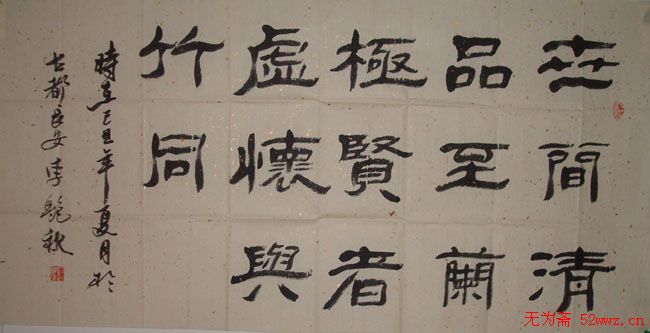 世間清
品至蘭
極賢者
虛懷與
竹同
時在己丑年夏月於
古都長安李艳秋
无为斋 52wwz.cn